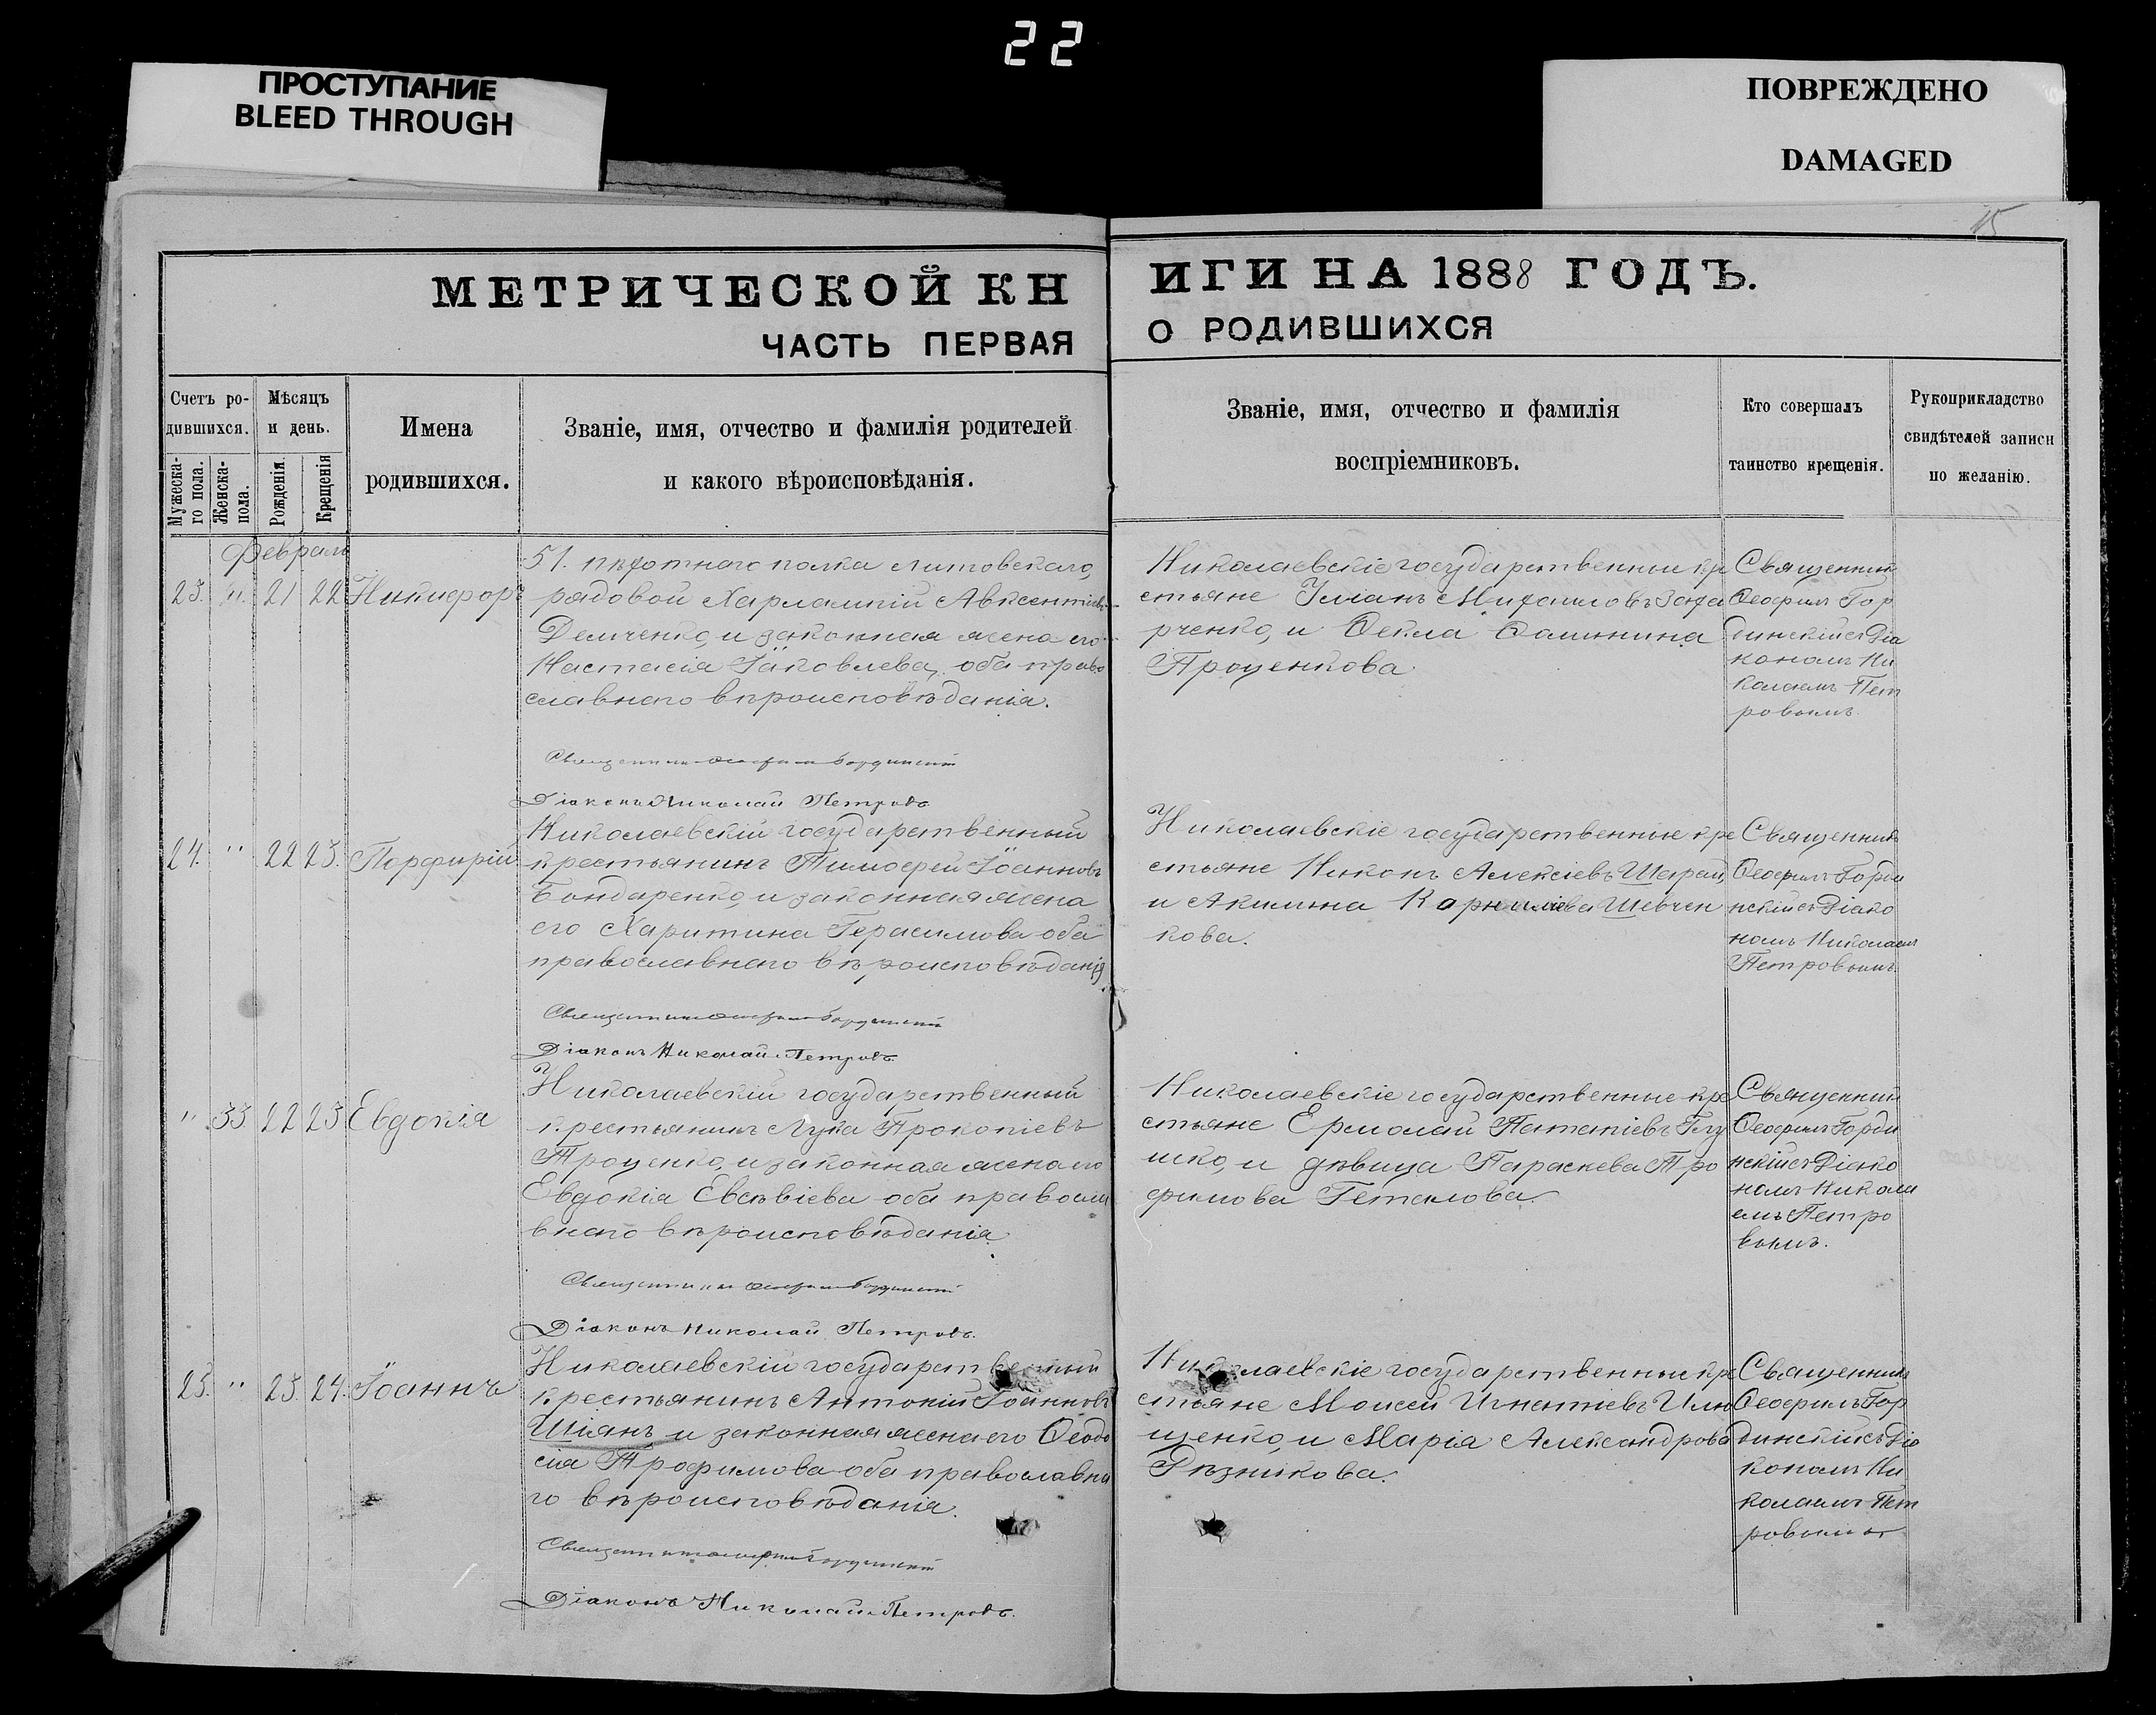 22
ПРОСТУПАНИЕ
BLEED THROUGH
ПОВРЕЖДЕНО
DAMAGED
15
МЕТРИЧЕСКОЙ КН
ИГИ НА 1888 ГОДЪ.
ЧАСТЬ ПЕРВАЯ
О РОДИВШИХСЯ
Счетъ ро-
дившихся.
Мужеска-
го пола.
Женска-
пола.
Мѣсяцъ
и день.
Рожденія.
Крещенія
Имена
родившихся.
Званіе, имя, отчество и фамилія родителей
и какого вѣроисповѣданія.
Званіе, имя, отчество и фамилія
воспріемниковъ.
Кто совершалъ
таинство крещенія.
Рукоприкладство
свидѣтелей записи
по желанію.
Февраль
23. " 21 22 Никифоръ
51. пѣхотнаго полка Литовскаго,
рядовой Харлампій Авксентіевъ
Демченко, и законная жена его
Настасія Іаковлева, оба право
славнаго вѣроисповѣданія.
Діаконъ Николай Петровъ
Николаевскіе государственные кре
стьяне Іуліанъ Михаиловъ Заха
рченко, и Ѳекла Ѳомина
Проценкова
Священник
Ѳеофилъ Гор
динскій съ Діа
кономъ Ни
колаемъ Пет
ровымъ.
24. " 22 23. Порфирій
Николаевскій государственный
крестьянинъ Тимоѳей Іоанновъ
Бондаренко, и законная жена
его Харитина Герасимова оба
православнаго вѣроисповѣданія
Діаконъ Николай Петровъ.
Николаевскіе государственные кре
стьяне Никонъ Алексіевъ Шарай,
и Акилина Корниліева Шевчен
кова.
Священникъ
Ѳеофилъ Горди
нскій съ Діако
номъ Николаемъ
Петровымъ.
" 33 22 23 Евдокія
Николаевскій государственный
крестьянинъ Лука Прокопіевъ
Троценко, и законная жена его
Евдокія Евсѣвіева оба правосла
внаго вѣроисповѣданія.
Діаконъ Николай Петровъ.
Николаевскіе государственные кре
стьяне Ермолай Патапіевъ Глу
шко, и дѣвица Параскева Тро
фимова Геталова.
Священник
Ѳеофилъ Горди
нскій съ Діако
номъ Никола
емъ Петро
вымъ.
25. " 23. 24. Іоаннъ
Николаевскій государственный
крестьянинъ Антоній Іоанновъ
Шіянъ и законная жена его Ѳеодо
сія Трофимова оба православна
го вѣроисповѣданія.
Діаконъ Николай Петровъ.
Николаевскіе государственные кре
стьяне Моисей Игнатіевъ Илю
щенко, и Марія Александрова
Рѣзникова.
Священникъ
Ѳеофилъ Гор
динскій съ Діа
кономъ Ни
колаемъ Пет
ровымъ